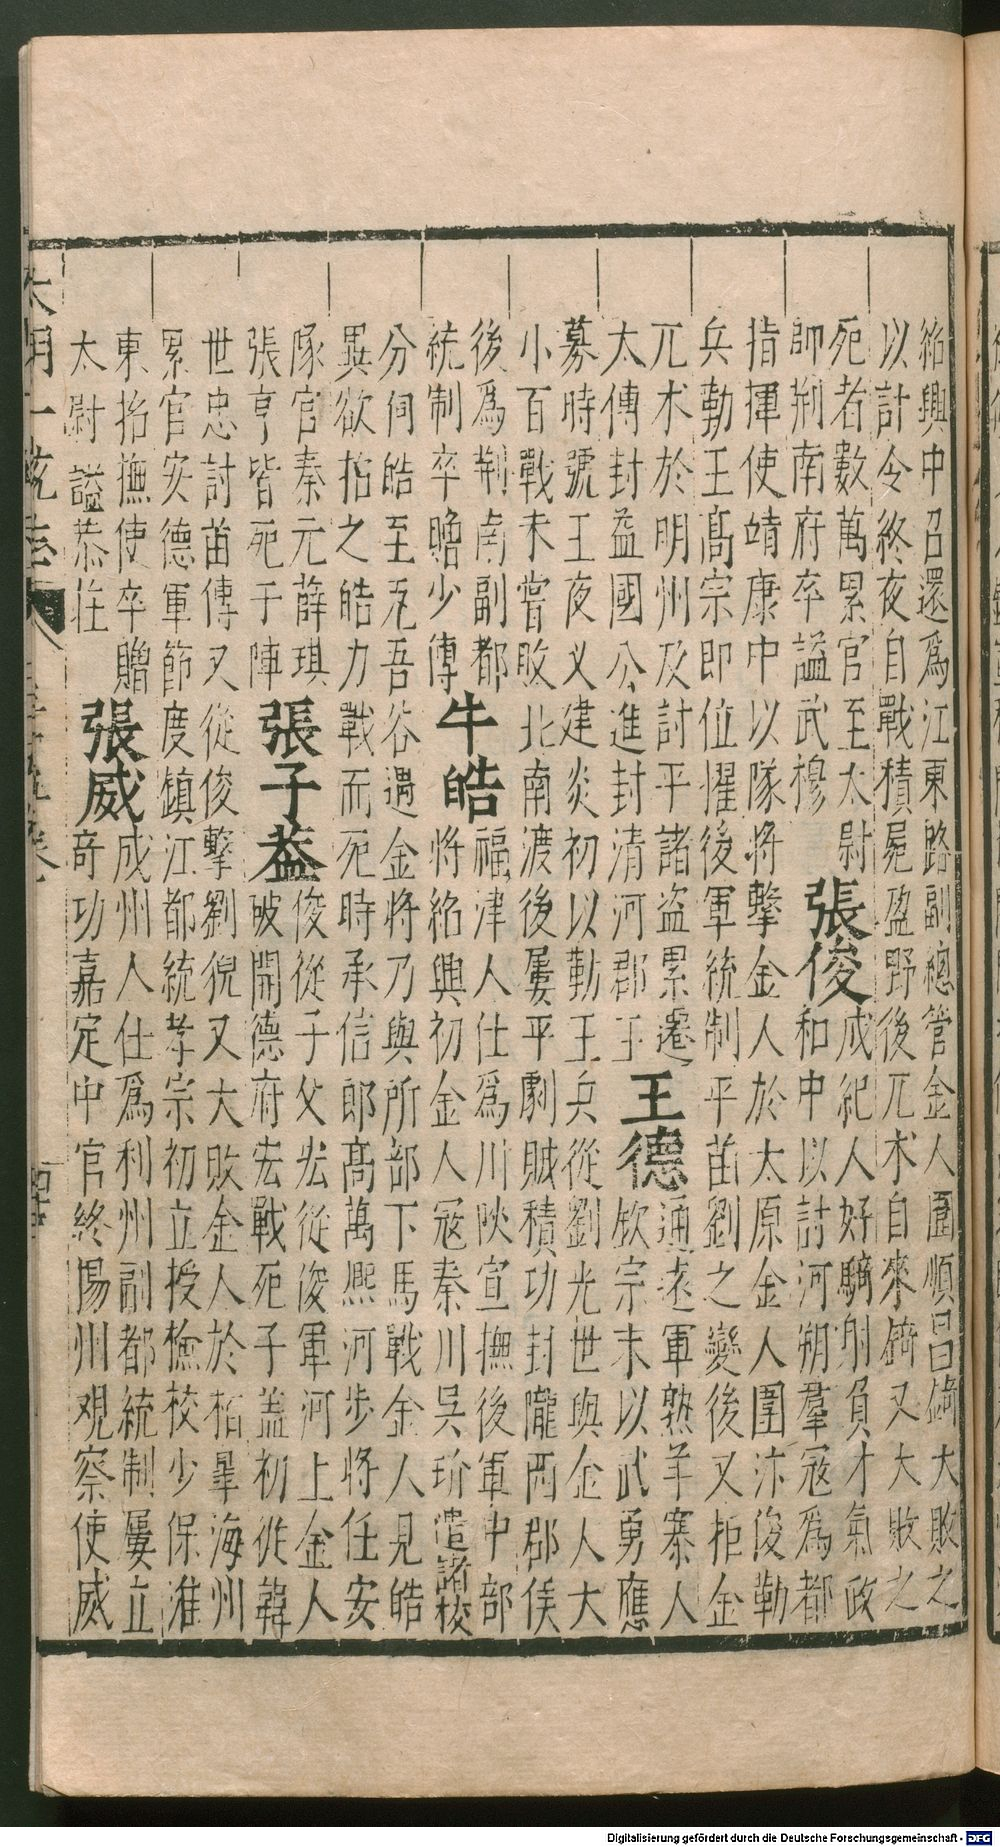 紹興中召還爲江東路副總管金人圍順昌錡大敗之
以計令終夜自戰積屍盈野後兀术自來錡又大敗之
死者數萬累官至太尉
帥荆南府卒謚武穆
張俊
成紀人好騎射負才氣政
和中以討河朔羣冦爲都
指揮使靖康中以隊將擊金人於太原金人圍汴俊勒
兵勤王髙宗即位擢後軍統制平苗劉之變後又拒金
兀术於明州及討平諸盗累遷
太傅封益國公進封清河郡王
王德
通遠軍熟羊寨人
欽宗末以武勇應
募時號王夜义建炎初以勤王兵從劉光世與金人大
小百戰未嘗敗北南渡後屢平劇賊積功封隴西郡侯
後爲荆南副都
統制卒贍少傅
牛皓
福津人仕爲川陜宣撫後軍中部
將紹興初金人冦秦川吳玠遣諸校
分伺皓至瓦吾谷遇金將乃與所部下馬戰金人見皓
異欲招之皓力戰而死時承信郎髙萬熈河步將任安
隊官秦元薛琪
張亨皆死于陣
張子葢
俊從子父宏從浚軍河上金人
破開德府宏戰死子盖初從韓
世忠討苗傅又從俊擊劉猊又大敗金人於柘皐海州
累官安德軍節度鎮江都統孝宗初立授撿校少保淮
東招撫使卒贈
太尉謚恭壯
張威
成州人仕爲利州副都統制屢立
奇功嘉定中官終揚州观察使威
大明一統志
Digitalisierung gefördert durch die Deutsche Forschungsgemeinschaft - DFG